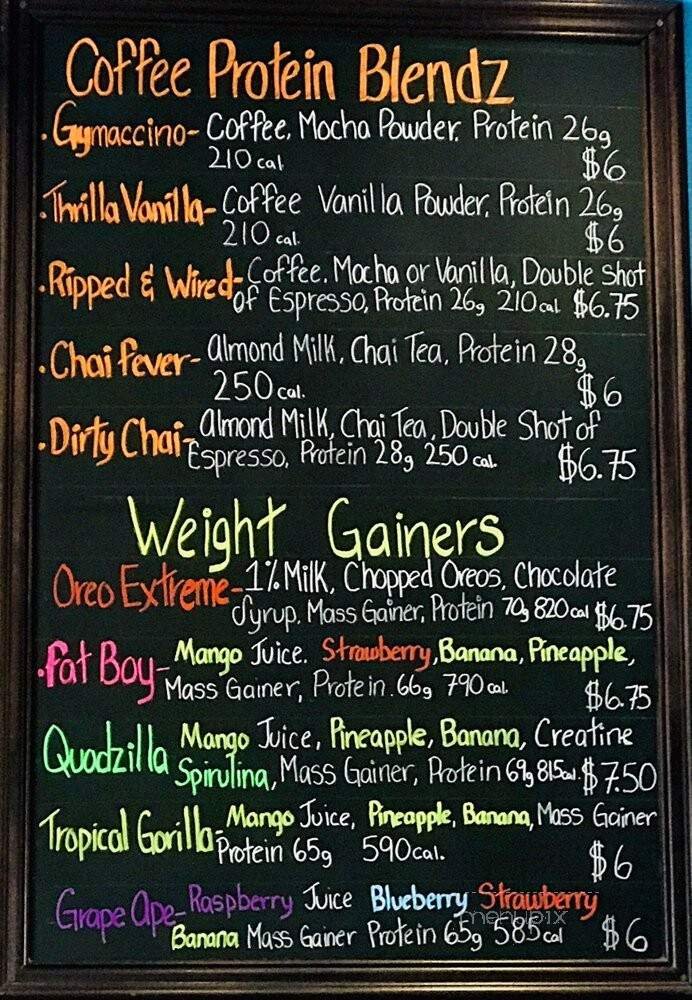 Coffee Protein Blendz
.Gymaccino- Coffee, Mocha Powder, Protein 26g
210 cal $6
.Thrilla Vanilla- Coffee Vanilla Powder, Protein 26g
210 cal. $6
.Ripped & Wired- Coffee, Mocha or Vanilla, Double Shot
of Espresso, Protein 26g 210 cal $6.75
.Chai fever- Almond Milk, Chai Tea, Protein 28g
250 cal. $6
.Dirty Chai- Almond Milk, Chai Tea, Double Shot of
Espresso, Protein 28g 250 cal. $6.75
Weight Gainers
Oreo Extreme- 1% Milk, Chopped Oreos, Chocolate
Syrup, Mass Gainer, Protein 70g 820 cal $6.75
.Fat Boy- Mango Juice. Strawberry, Banana, Pineapple,
Mass Gainer, Protein. 66g 790 cal. $6.75
Quadzilla Mango Juice, Pineapple, Banana, Creatine
Spirulina, Mass Gainer, Protein 69g 815cal. $7.50
Tropical Gorilla- Mango Juice, Pineapple, Banana, Mass Gainer
Protein 65g 590cal. $6
Grape Ape- Raspberry Juice Blueberry Strawberry
menupix
Banana Mass Gainer Protein 65g 585 cal $6